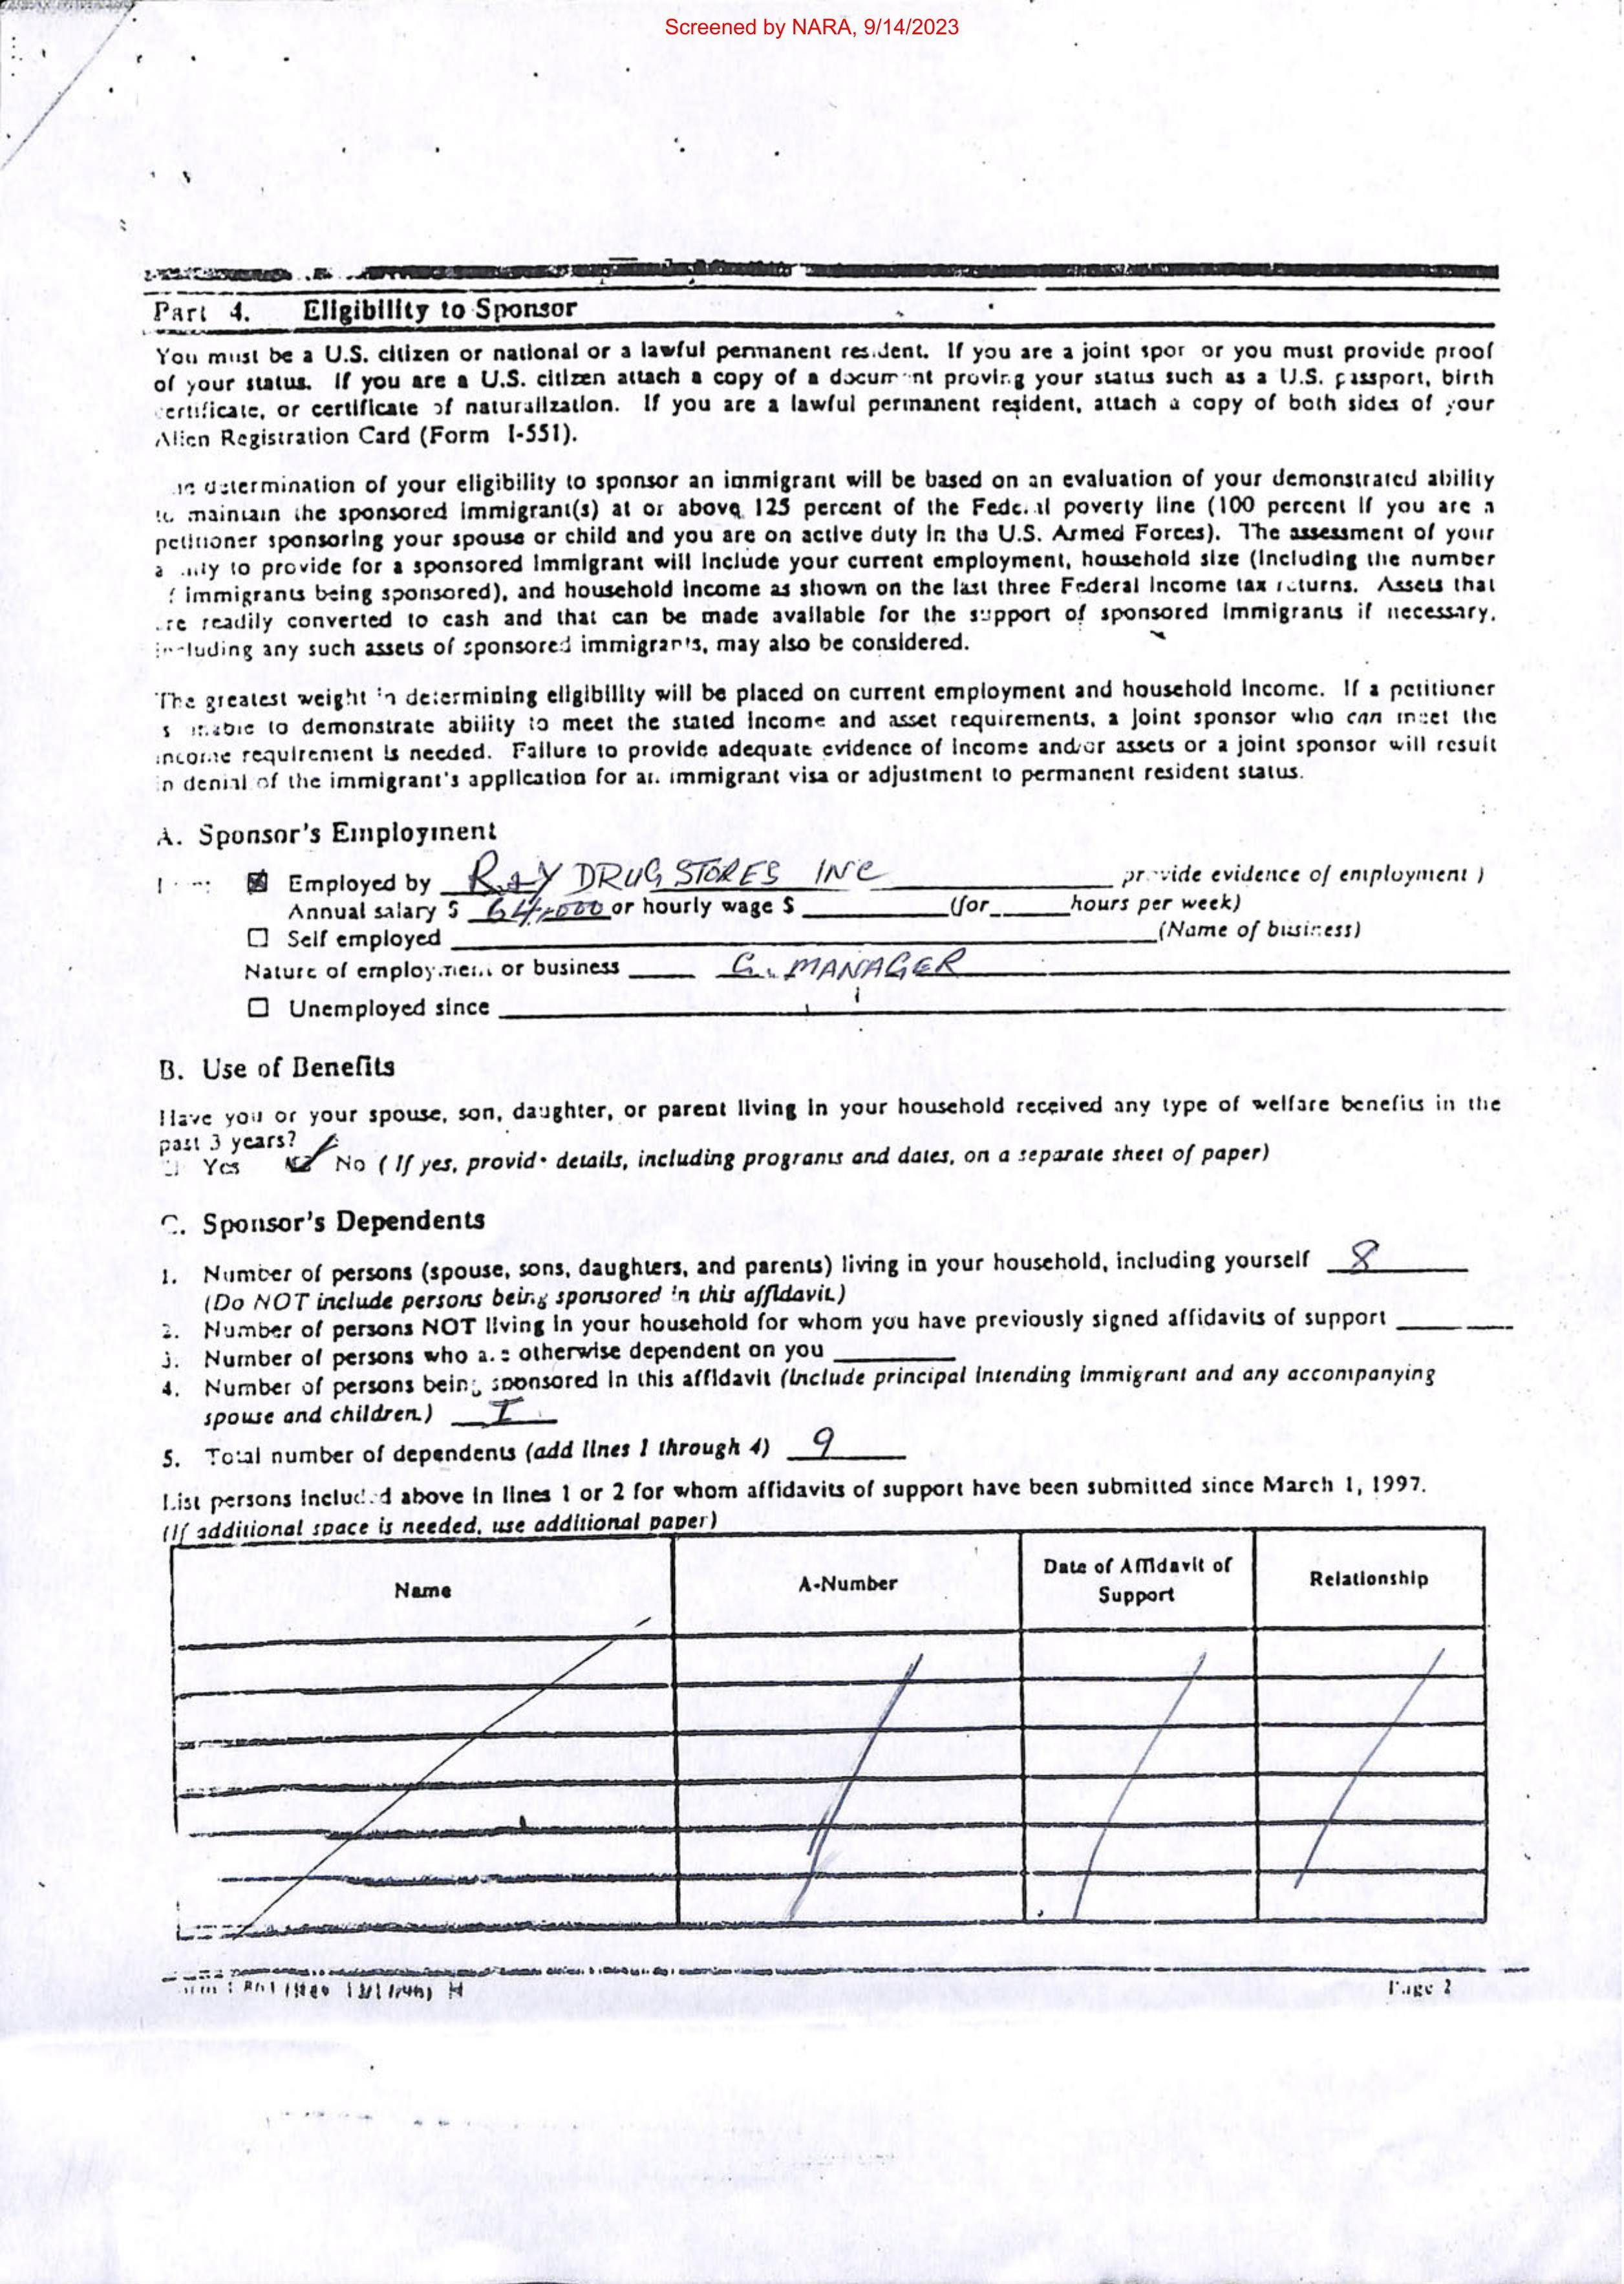 Screened by NARA, 9/14/2023
Part 4. Eligibility to Sponsor
You must be a U.S. citizen or national or a lawful permanent resident. If you are a joint spor or you must provide proof
of your status. If you are a U.S. citizen attach a copy of a document proving your status such as a U.S. passport, birth
certificate, or certificate of naturalization. If you are a lawful permanent resident, attach a copy of both sides of your
Alien Registration Card (Form I-551).
determination of your eligibility to sponsor an immigrant will be based on an evaluation of your demonstrated ability
to maintain the sponsored immigrant(s) at or above 125 percent of the Federal poverty line (100 percent if you are a
petitioner sponsoring your spouse or child and you are on active duty in the U.S. Armed Forces). The assessment of your
to provide for a sponsored immigrant will include your current employment, household size (including the number
immigrants being sponsored), and household income as shown on the last three Federal income tax returns. Assets that
re readily converted to cash and that can be made available for the support of sponsored immigrants if necessary,
including any such assets of sponsored immigrants, may also be considered.
The greatest weight in determining eligibility will be placed on current employment and household income. If a petitioner
to demonstrate ability to meet the stated income and asset requirements, a joint sponsor who can meet the
income requirement is needed. Failure to provide adequate evidence of income and/or assets or a joint sponsor will result
in denial of the immigrant's application for an immigrant visa or adjustment to permanent resident status.
A. Sponsor's Employment
Employed by R&Y DRUG STORES INC provide evidence of employment )
Annual salary $ 64,000 or hourly wage $ (for hours per week)
Self employed (Name of business)
Nature of employment or business G. MANAGER
Unemployed since
B. Use of Benefits
Have you or your spouse, son, daughter, or parent living in your household received any type of welfare benefits in the
past 3 years?
Yes No ( If yes, provide details, including programs and dates, on a separate sheet of paper)
C. Sponsor's Dependents
1. Number of persons (spouse, sons, daughters, and parents) living in your household, including yourself 8
(Do NOT include persons being sponsored in this affidavit.)
2. Number of persons NOT living in your household for whom you have previously signed affidavits of support
3. Number of persons who are otherwise dependent on you
4. Number of persons being sponsored in this affidavit (Include principal intending immigrant and any accompanying
spouse and children.) I
5. Total number of dependents (add lines 1 through 4) 9
List persons included above in lines 1 or 2 for whom affidavits of support have been submitted since March 1, 1997.
(If additional space is needed, use additional paper)
Name A-Number Date of Affidavit of Support Relationship
Page 2